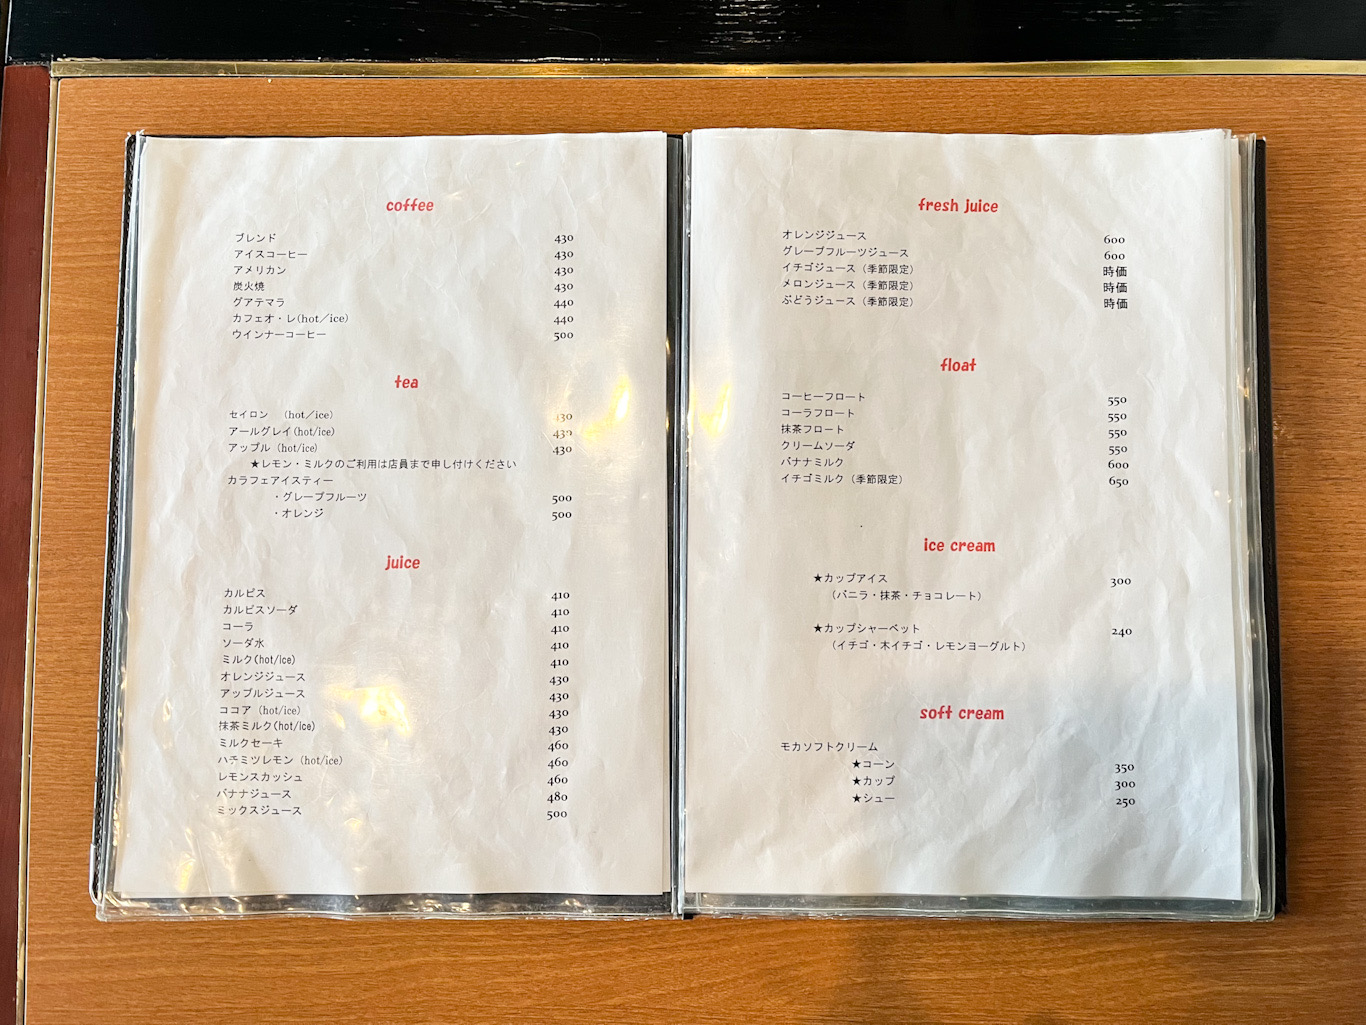 coffee
ブレンド 430
アイスコーヒー 430
アメリカン 430
炭火焼 430
グアテマラ 440
カフェオ・レ(hot／ice) 440
ウインナーコーヒー 500
tea
セイロン (hot／ice) 430
アールグレイ(hot/ice) 430
アップル (hot/ice) 430
★レモン・ミルクのご利用は店員まで申し付けください
カラフェアイスティー
・グレープフルーツ 500
・オレンジ 500
juice
カルピス 410
カルピスソーダ 410
コーラ 410
ソーダ水 410
ミルク(hot/ice) 410
オレンジジュース 430
アップルジュース 430
ココア (hot/ice) 430
抹茶ミルク(hot/ice) 430
ミルクセーキ 460
ハチミツレモン (hot/ice) 460
レモンスカッシュ 460
バナナジュース 480
ミックスジュース 500
fresh juice
オレンジジュース 600
グレープフルーツジュース 600
イチゴジュース (季節限定) 時価
メロンジュース (季節限定) 時価
ぶどうジュース (季節限定) 時価
float
コーヒーフロート 550
コーラフロート 550
抹茶フロート 550
クリームソーダ 550
バナナミルク 600
イチゴミルク (季節限定) 650
ice cream
★カップアイス 300
(バニラ・抹茶・チョコレート)
★カップシャーベット 240
(イチゴ・木イチゴ・レモンヨーグルト)
soft cream
モカソフトクリーム
★コーン 350
★カップ 300
★シュー 250